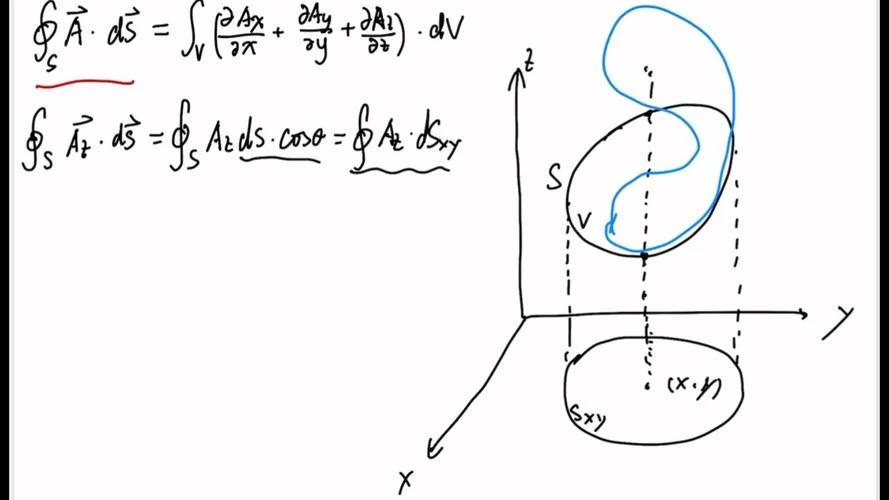 ∮_S A⃗ · ds⃗ = ∫_V (∂Ax/∂x + ∂Ay/∂y + ∂Az/∂z) · dV
∮_S A⃗z · ds⃗ = ∮_S Az ds · cosθ = ∮ Az · dSxy
z
S
V
y
(x, y)
Sxy
x